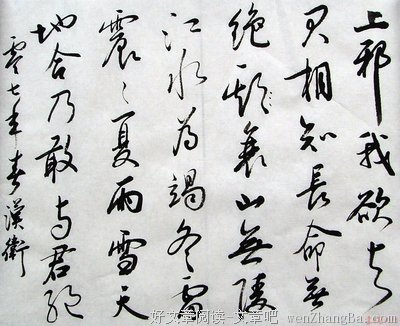 上邪我欲与
君相知長命無
絕衰山無陵
江水為竭冬雷
震々夏雨雪天
地合乃敢与君絕
零七年春漢衛
好文章阅读-文章吧 wenZhangBa.com